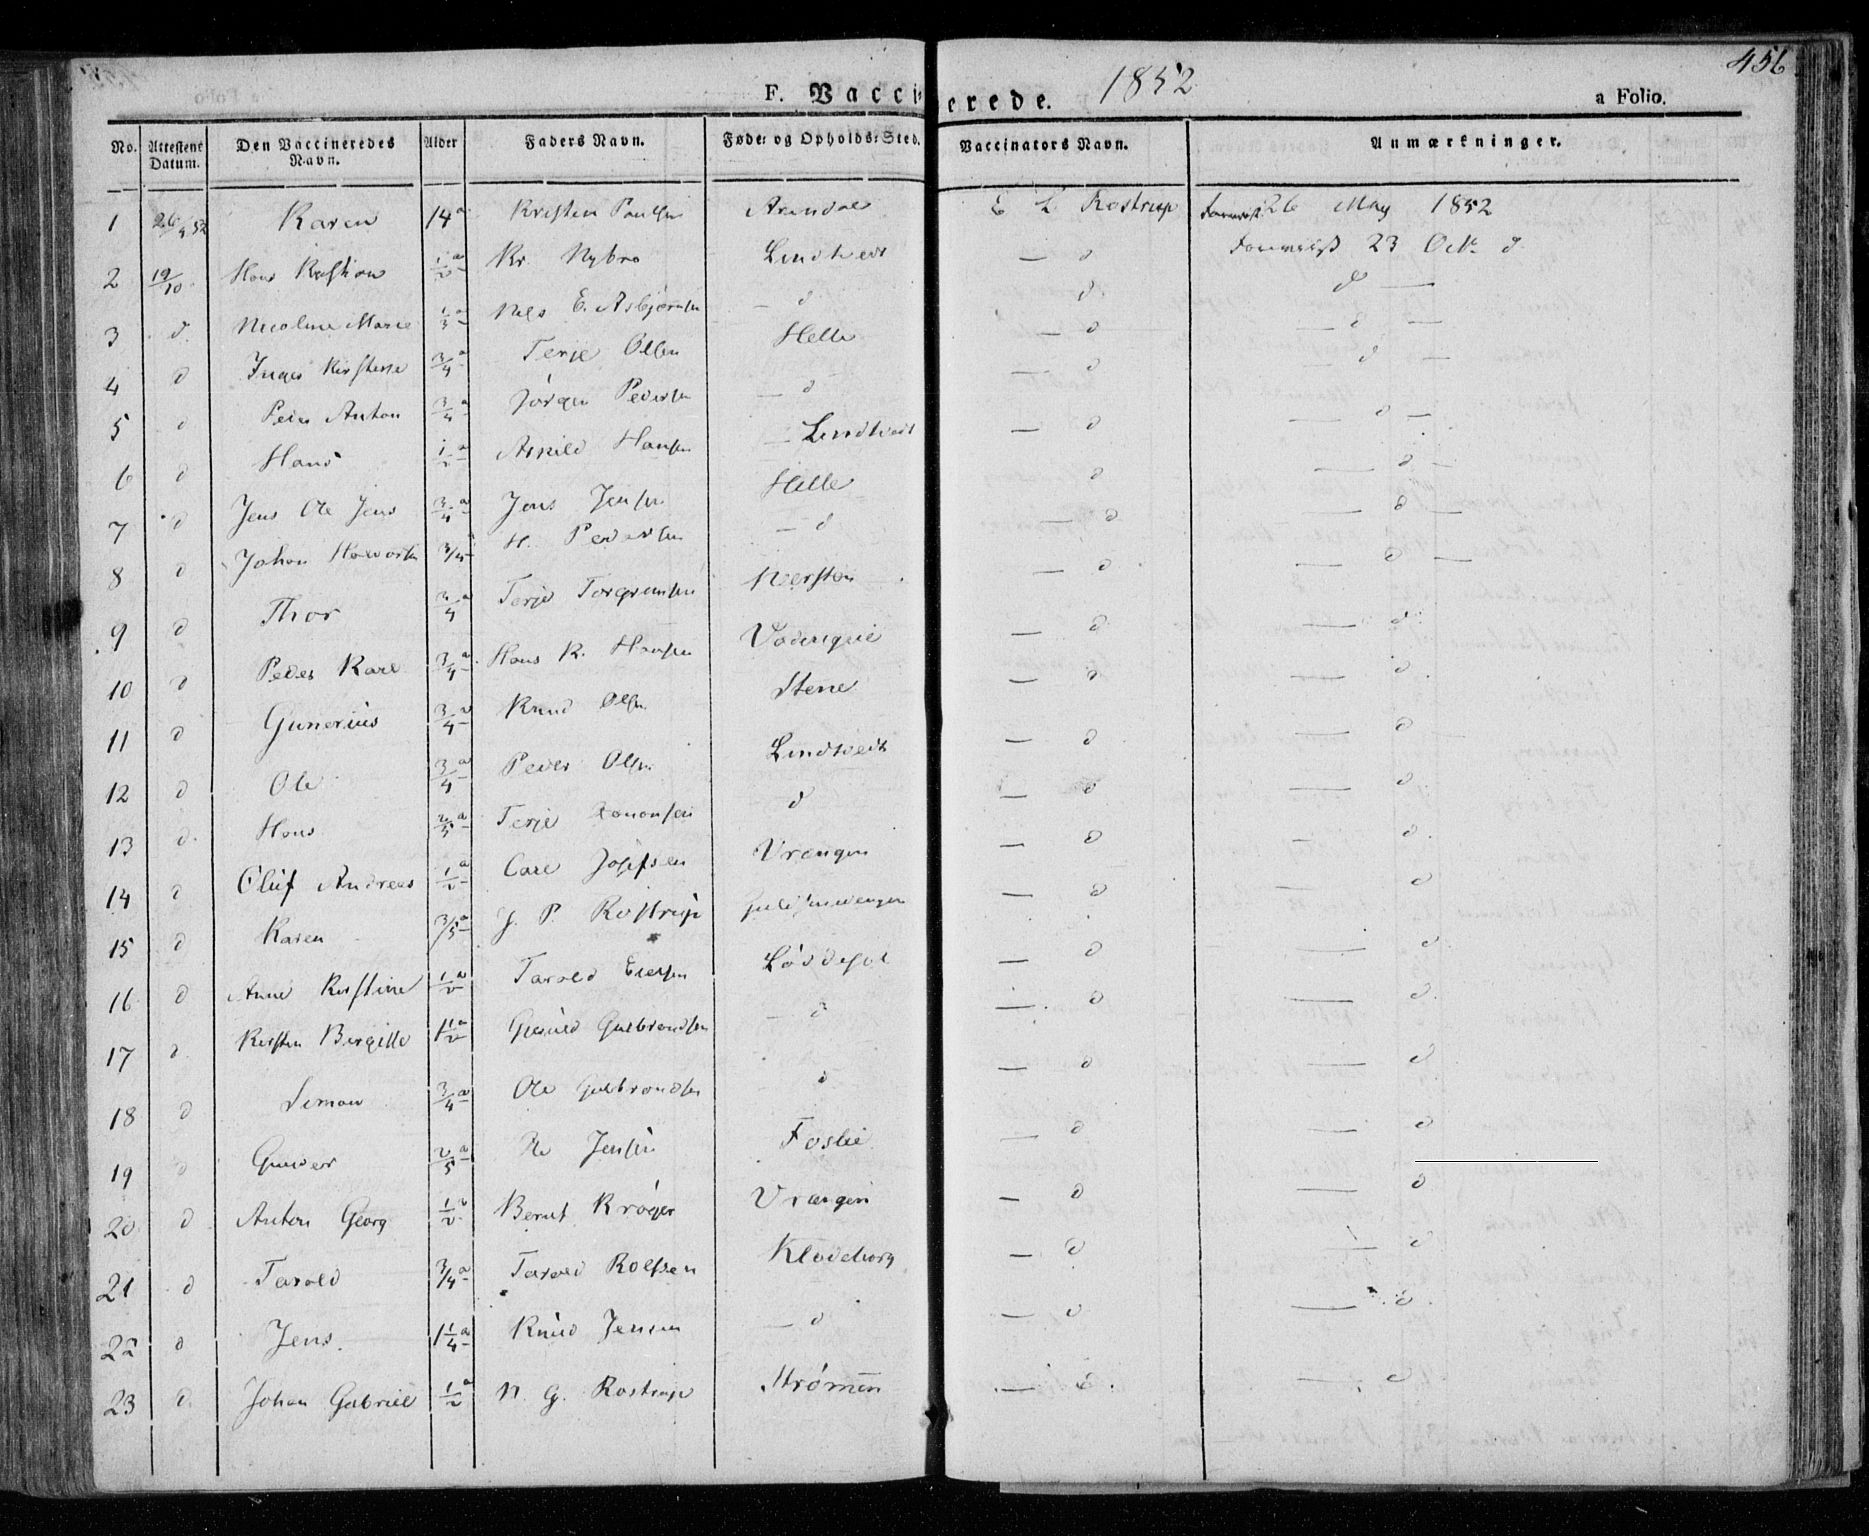 456
F. Vaccinerede. 1852 a Folio.
No. Attestens Datum. Den Vaccineredes Navn. Alder Faders Navn. Føde- og Opholds-Sted. Vaccinators Navn. Anmærkninger.
1 26/4 52 Karen 14 a Kristen Paulsen Arendal E L Rostrup 26 May 1852
2 19/10 Hans Kristian 1/2 a Kr. Nybro Lindtvedt — d 23 Oct. d.
3 d Nicoline Marie 1/3 a Nels E. Asbjørnsen — d d d —
4 d Inger Kirstene 3/4 a Terje Olsen Helle — d — d —
5 d Peder Anton 3/4 a Jørgen Pedersen — d — d d —
6 d Hans 1/2 a Arnild Hansen Lindtvedt — d d —
7 d Jens Ole Jens 3/4 a Jens Jensen Helle d — d —
8 d Johan 3/4 H. Pedersen — d — d — d —
9 d Thor 3/4 a Terje Torgrimsen — d — d —
10 d Peder Karl 3/4 a Hans K. Hansen — d — d
11 d Gunerius 3/4 a Knud Olsen Stene — d — d
12 d Ole 3/4 a Peder Olsen Lindtvedt — d d
13 d Hans 2/3 a Terje d — d — d
14 d Oluf Andreas 1/2 a Carl Josefsen Vrengen — d — d
15 d Karen 3/5 a J. P. Rostrup — d — d
16 d Anne Kirstine 1/2 a Tarald Løddesøl — d — d
17 d Kirsten Birgitte 1 1/2 a Gulbrandsen — d — d — d
18 d Simon 3/4 a Ole Gulbrandsen d — d — d
19 d Gunder 2/5 a Ole Jensen Foslie — d — d
20 d Anton Georg 1/2 a Bernt Krøger Vrengen — d — d
21 d Tarald 3/4 a Tarald Rolfsen Klodeborg — d — d
22 d Jens 1 1/4 a Knud Jensen — d — d — d
23 d Johan Gabriel 1/2 a N. G. Rostrup Strømmen — d — d